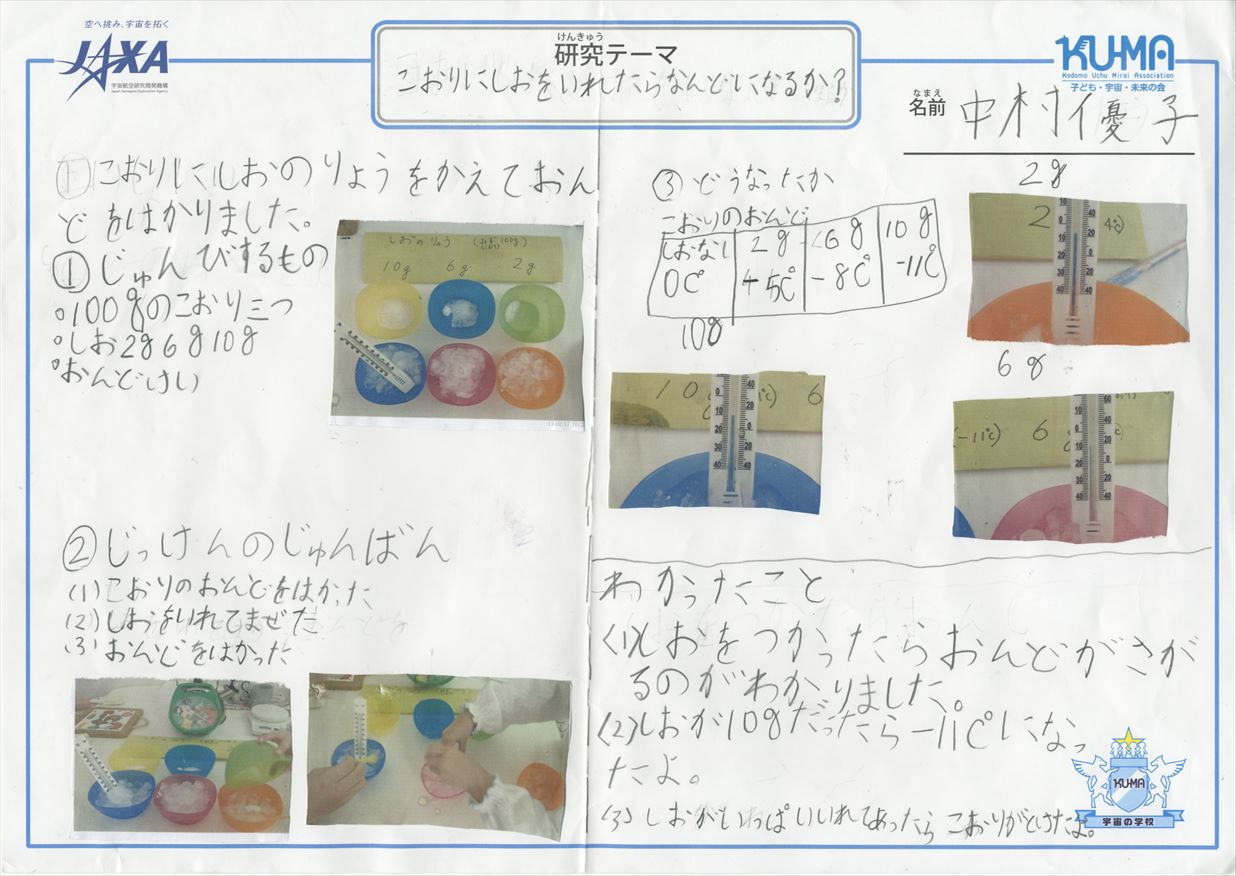 空へ挑み、宇宙を拓く
JAXA
宇宙航空研究開発機構
Japan Aerospace Exploration Agency
けんきゅう
研究テーマ
こおりにしおをいれたらなんどになるか?
KU-MA
Kodomo Uchu Mirai Association
子ども・宇宙・未来の会
なまえ
名前 中村優子
こおりにしおのりょうをかえておん
どをはかりました。
①じゅんびするもの
○100gのこおり三つ
○しお2g6g10g
○おんどけい
しおのりょう
10g 6g 2g
②じっけんのじゅんばん
(1)こおりのおんどをはかった
(2)しおをいれてまぜた
(3)おんどをはかった
③どうなったか
こおりのおんど
しおなし 2g 6g 10g
0C° -8C° -11C°
2g
2 4℃)
10g
10 6
6g
(-11℃) 6
わかったこと
(1)しおをつかったらおんどがさが
るのがわかりました。
(2)しおが10gだったら-11C°になっ
たよ。
(3)しおがいっぱいいれてあったらこおりがとけたよ。
KUMA
宇宙の学校